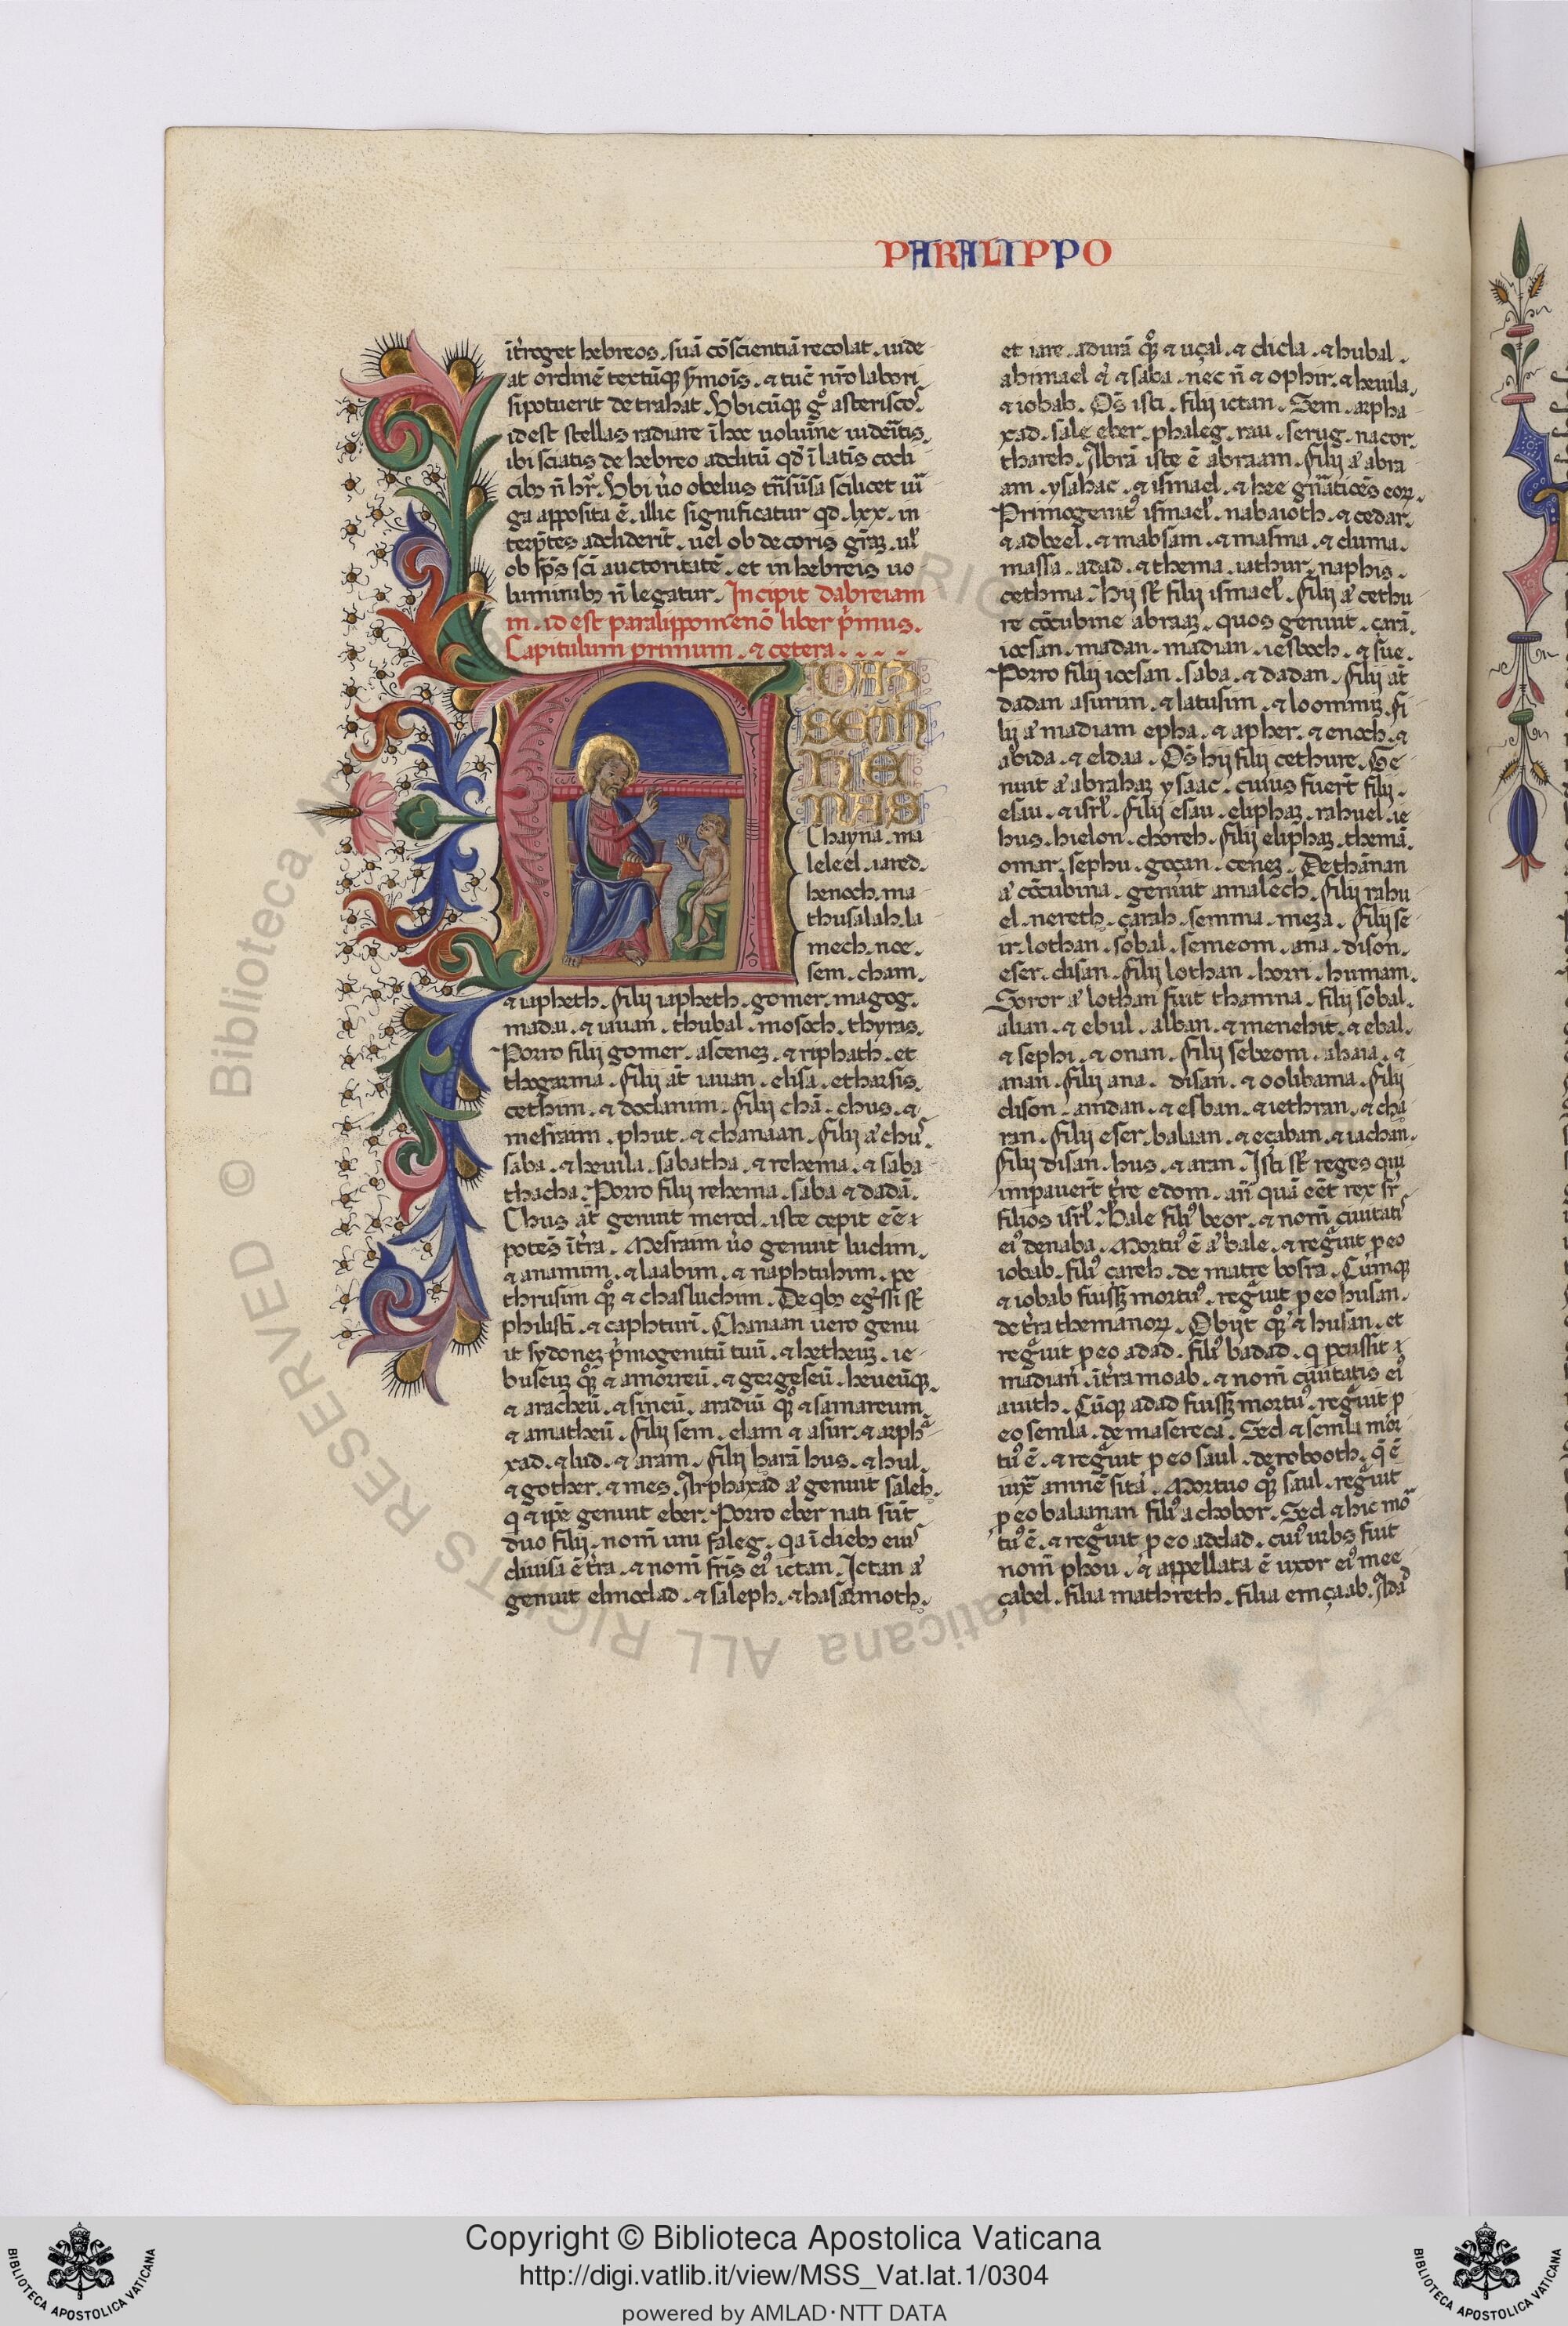 PARALIPPO
ĩt̃roget hebreos. suã cõscientiã recolat. uide
at ordinẽ textũq; s̃mõis. ⁊ tũc nr̃o labori
si potuerit detrahat. Vbicũq; gͦ asteriscos
id est stellas radiare ĩ hoc uolumĩe uideĩtis.
ibi sciatis de hebreo additũ qđ ĩ latĩs codi
cib; ñ hr̃. Vbi ũo obelus tñsũsa scilicet uir̃
ga apposita ẽ. illic significatur qđ. lxx. in
terp̃tes addiderĩt. uel ob decoris gr̃az. ul̃
ob sp̃s sc̃i auctoritatẽ. et in hebreis uo
luminib; ñ legatur. Incipit dabreiam
in. id est paralippomenõ liber p̃mus.
Capitulum primum. ⁊ cetera. . . .
ADAZ
SETH
NE
MAS
Chayna. ma
leleel. iared.
henoch. ma
thusalah. la
mech. noe.
sem. cham.
⁊ iapheth. filij iapheth. gomer. magog.
madai. ⁊ iauan. thubal. mosoch. thyras.
Porro filij gomer. ascenez. ⁊ riphath. et
thogarma. filij aũt iauan. elisa. et harsis.
cethim. ⁊ dodanim. filij chã. chus. ⁊
mesraim. phut. ⁊ chanaan. filij aͣ chus.
saba. ⁊ heuila. sabatha. ⁊ rehema. ⁊ saba
thacha. Porro filij rehema. saba ⁊ dadã.
Chus aũt genuit nerod. iste cepit eẽ ĩ
potẽs ĩ t̃ra. Mesraim ũo genuit ludim.
⁊ anamim. ⁊ laabim. ⁊ naphtuhim. pe
thrusim qͦ; ⁊ chasluchim. De qb; eg̃ssi st̃
philistĩ. ⁊ caphturĩ. Chanaan uero genu
it sydonez p̃mogenitũ tuũ. ⁊ hetheuz. ie
buseuz qͦ; ⁊ amorreũ. ⁊ gergeseũ. heueũq;.
⁊ aracheũ. ⁊ sineũ. aradiũ qͦ; ⁊ samareum.
⁊ amatheũ. filij sem. elam ⁊ asur. ⁊ arphͣ
xad. ⁊ lud. ⁊ aram. filij harã hus. ⁊ hul.
⁊ gother. ⁊ mes. Arphaxad aͣ genuit saleh.
q ⁊ ip̃e genuit eber. Porro eber nati sũt
duo filij. nom̃ uni faleg. qa ĩ dieb; eius
diuisa ẽ t̃ra. ⁊ nom̃ fr̃is eiꝰ ictan. Ictan aͣ
genuit elmodad. ⁊ saleph. ⁊ hasarmoth.
et iare. adurã qͦ; ⁊ uçal. ⁊ dicla. ⁊ hubal.
abimael ⁊ saba. nec ñ ⁊ ophir. ⁊ heuila.
⁊ iobab. Oẽs isti. filij ictan. Sem. arpha
xad. sale. eber. phaleg. rau. serug. nacor.
thareh. Abrã iste ẽ abraam. filij aͣ abra
am. ysahac. ⁊ ismael. ⁊ hee gñaticões eoꝝ.
Primogenitꝰ ismael̃. nabaioth. ⁊ cedar.
⁊ adbeel. ⁊ mabsam. ⁊ masma. ⁊ duma.
massa. adad. ⁊ thema. iathur. naphis.
cethma. hij st̃ filij ismael̃. filij aͣ cethu
re cõcubine abraaz. quos genuit. carã.
iocsan. madan. madian. iesboch. ⁊ sũe.
Porro filij iocsan. saba. ⁊ dadan. filij aũt
dadan asurim. ⁊ latusim. ⁊ loommiz. fi
lij aͣ madiam epha. ⁊ apher. ⁊ enoch. ⁊
abida. ⁊ eldaa. Oẽs hij filij cethure. Ge
nuit aͣ abrahaz ysaac. cuius fuert̃ filij.
esau. ⁊ isrl̃. filij esau. eliphaz. rahuel. ie
hus. hielon. choreh. filij eliphaz. themã.
omar. sephu. goçan. cenez. De thãnan
aͣ cõcubina. genuit amalech. filij rahu
el. nereth. çarah. semma. meza. filij se
ir. lothan. sobal. semeom. ana. dison.
eser. disan. filij lothan. horri. humam.
Soror aͣ lothan fuit thamna. filij sobal.
alian. ⁊ ebul. alban. ⁊ menehit. ⁊ ebal.
⁊ sephi. ⁊ onan. filij sebeom. ahaia. ⁊
anan. filij ana. disan. ⁊ oolibama. filij
dison. amdan. ⁊ esban. ⁊ iethran. ⁊ cha
ran. filij eser. balaan. ⁊ eçaban. ⁊ iachan.
filij disan. hus. ⁊ aran. Isti st̃ reges qui
impauerĩt t̃re edom. añ quã eẽt rex sr̃
filios isrl̃. Bale filiꝰ beor. ⁊ nom̃ ciuitatĩ
eiꝰ denaba. Mortuꝰ ẽ aͣ bale. ⁊ regͣuit p eo
iobab. filiꝰ çareh. de matre bosra. Cũmq;
⁊ iobab fuisz mortuꝰ. regͣuit p eo husan.
de t̃ra themanoꝝ. Obijt qͦ; ⁊ husan. et
regͣuit p eo adad. filiꝰ badad. q pcussit ĩ
madian̄. ĩ t̃ra moab. ⁊ nom̃ ciuitatis eiꝰ
auith. Cũq; adad fuisz mortuꝰ. regͣuit p
eo semla. de masereca. Sed ⁊ semla mor
tuꝰ ẽ. ⁊ regͣuit p eo saul. de robooth. q̃ ẽ
iuxͣ amnẽ sita. Mortuo qͦ; saul. regͣuit
p eo balaanan filiꝰ achobor. Sed ⁊ hic mor̃
tuꝰ ẽ. ⁊ regͣuit p eo addad. cuiꝰ urbs fuit
nom̃ phou. ⁊ appellata ẽ uxor eiꝰ mee
çabel. filia mathreth. filia emçaab. Adad
© Biblioteca Apostolica Vaticana ALL RIGHTS RESERVED
Copyright © Biblioteca Apostolica Vaticana
http://digi.vatlib.it/view/MSS_Vat.lat.1/0304
powered by AMLAD·NTT DATA
BIBLIOTECA APOSTOLICA VATICANA
BIBLIOTECA APOSTOLICA VATICANA